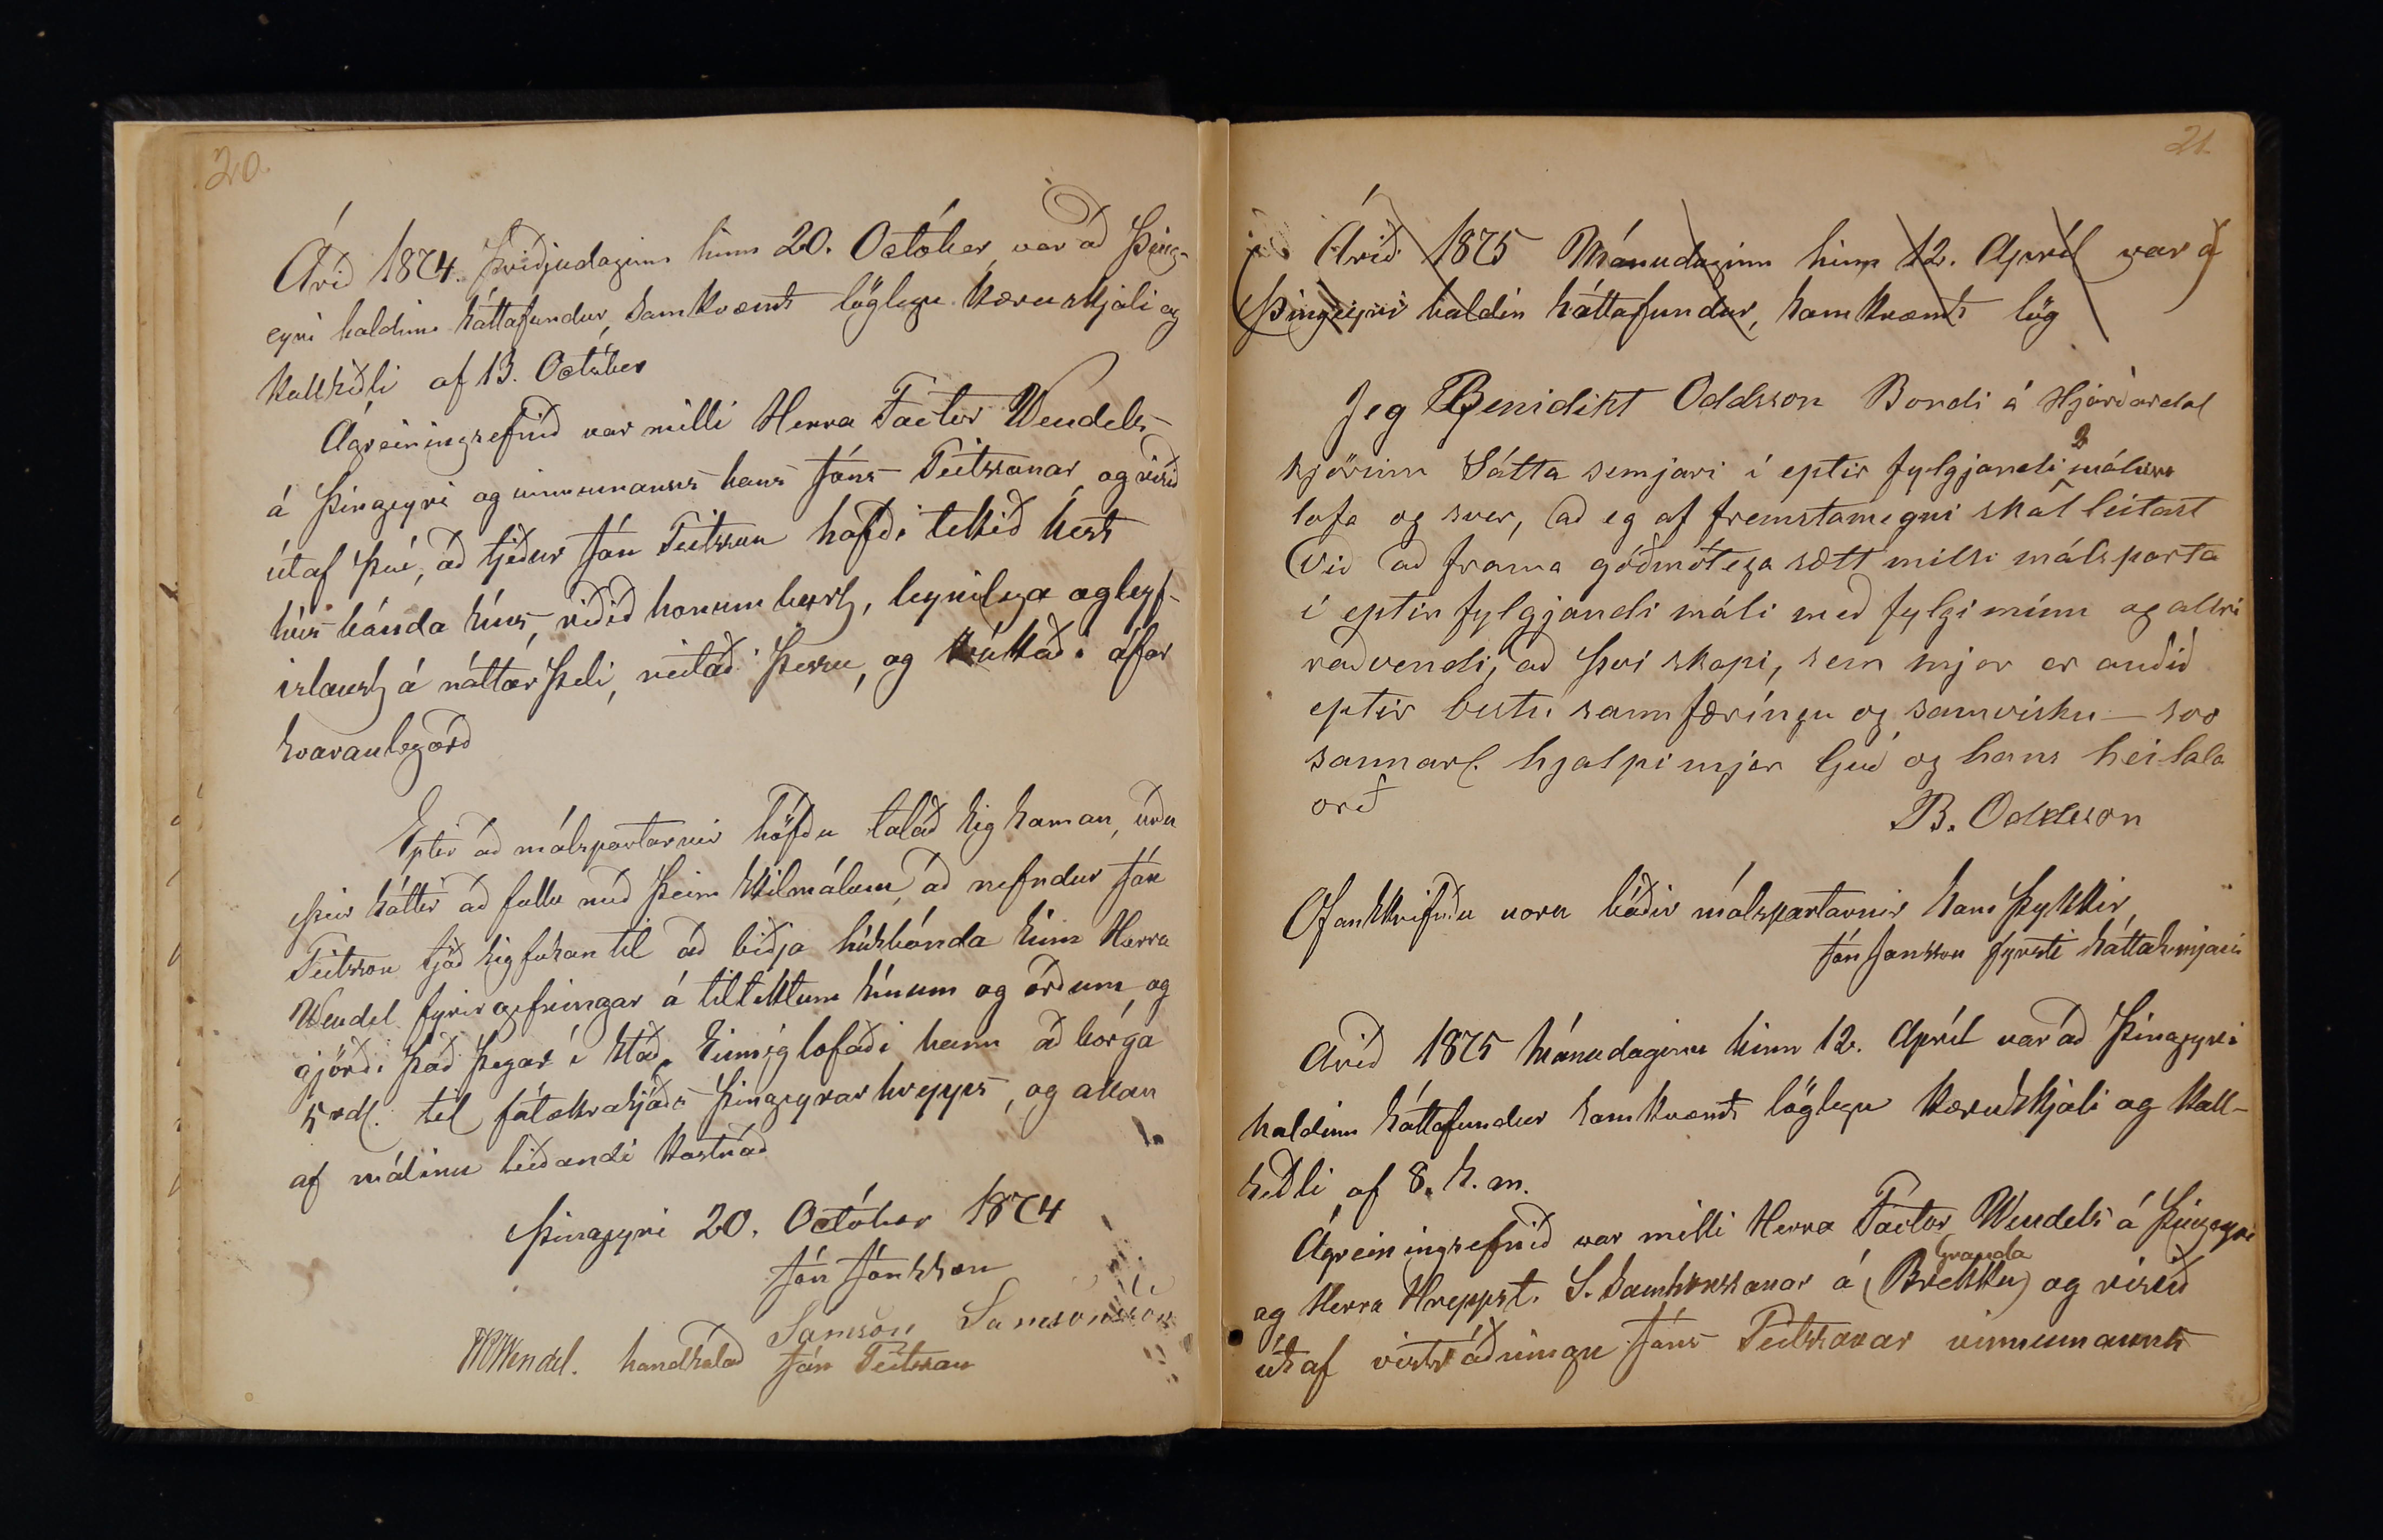 20.
Árið 1874 Þriðjudaginn hinn 20. Octóber var að Þing-
eyri haldinn sáttafundur, samkvæmt löglegu kæruskjali og
kallseðli af 13. Octóber
Ágreiningsefnið var milli Herra Factor Wendels
á Þingeyri og vinnumanns hans Jóns Teitssonar, og risið
útaf því, að tjeður Jón Teitsson hafði tekið hest
húsbónda síns, riðið honum burt, leynilega og leyf-
islaust á náttarþeli, neitað þessu, og brúkað áfar
svaranleg orð
Eptir að málspartarnir höfðu talað sig saman, urðu
þeir sáttir að fullu með þeim skilmálum, að nefndur Jón
Teitsson tjáð sig fúsan til að biðja húsbónda sinn Herra
Wendel fyrirgefningar á tiltektum sínum og orðum, og
gjörði það þegar í stað. Einnig lofaði hann að borga
5 rdl. til fátækrasjóðs Þingeyrarhrepps, og allan
af málinu leiðandi kostnað
Þingeyri 20. Octóber 1874
Jón Jónsson
Samson Samsonsson
Wendel. handsalað Jón Teitsson
21
Árið 1875 Mánudaginn hinn 12. Apríl var á
Þingeyri haldin sáttafundur, samkvæmt lög
Jeg Benidikt Oddsson Bondi á Hjarðardal
kjörinn Sátta semjari í eptir fylgjandi 2 málum
lofa og sver, að eg af fremstamegni skal leitast
við að frama góðmótega sætt milli málsparta
í eptir fylgjandi máli með fylgi mínu og allri
raðvendi, að því skapi, sem mjer er auðið
eptir bestu sannfæríngu og samvisku – svo
sannarl. hjalpi mjer Guð og hans heilala
orð
B. Oddsson
Ofanskrifuðu voru báðir málspartarnir samþykkir
Jón Jonsson fyrsti sáttasemjari
Arið 1875 Mánudaginn hinn 12. Apríl var að Þingeyri
haldinn sáttafundur samkvæmt löglegu kæruskjali og kall-
seðli af 8. s. m.
Ágreiningsefnið var milli Herra Factor Wendels á Þingeyri
og Herra Hreppst. S. Samsonssonar á (Brekku) Granda og risið
út af vistráðningu Jóns Teitssonar vinnumanns